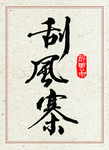 刮風寨